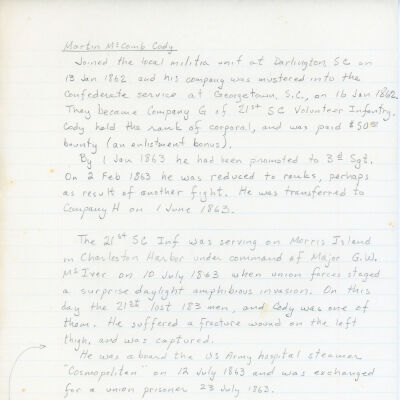 Martin McComb Cody
Joined the local militia unit at Darlington, SC on
13 Jan 1862 and his company was mustered into the
Confederate service at Georgetown, S.C., on 16 Jan 1862.
They became Company G of 21st SC Volunteer Infantry.
Cody held the rank of corporal, and was paid $50.00
bounty (an enlistment bonus).
By 1 Jan 1863 he had been promoted to 3rd Sgt.
On 2 Feb 1863 he was reduced to ranks, perhaps
as result of another fight. He was transferred to
Company H on 1 June 1863.
The 21st SC Inf was serving on Morris Island
in Charleston Harbor under command of Major G.W.
McIver on 10 July 1863 when union forces staged
a surprise daylight amphibious invasion. On this
day the 21st lost 183 men, and Cody was one of
them. He suffered a fracture wound on the left
thigh, and was captured.
He was aboard the US Army hospital steamer
"Cosmopolitan" on 12 July 1863 and was exchanged
for a union prisoner 23 July 1863.